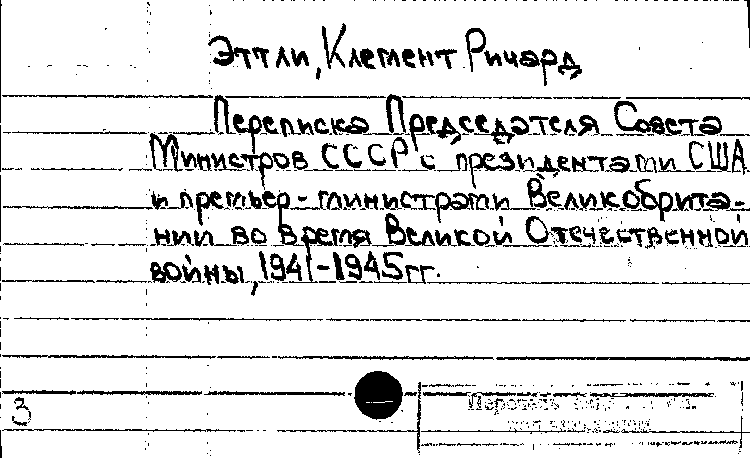 Эттли, Клемент Ричард
Переписка Председателя Совета
Министров СССР с президентами США
и премьер-министрами Великобрита-
нии во время Великой Отечественной
войны, 1941-1945 гг.
3